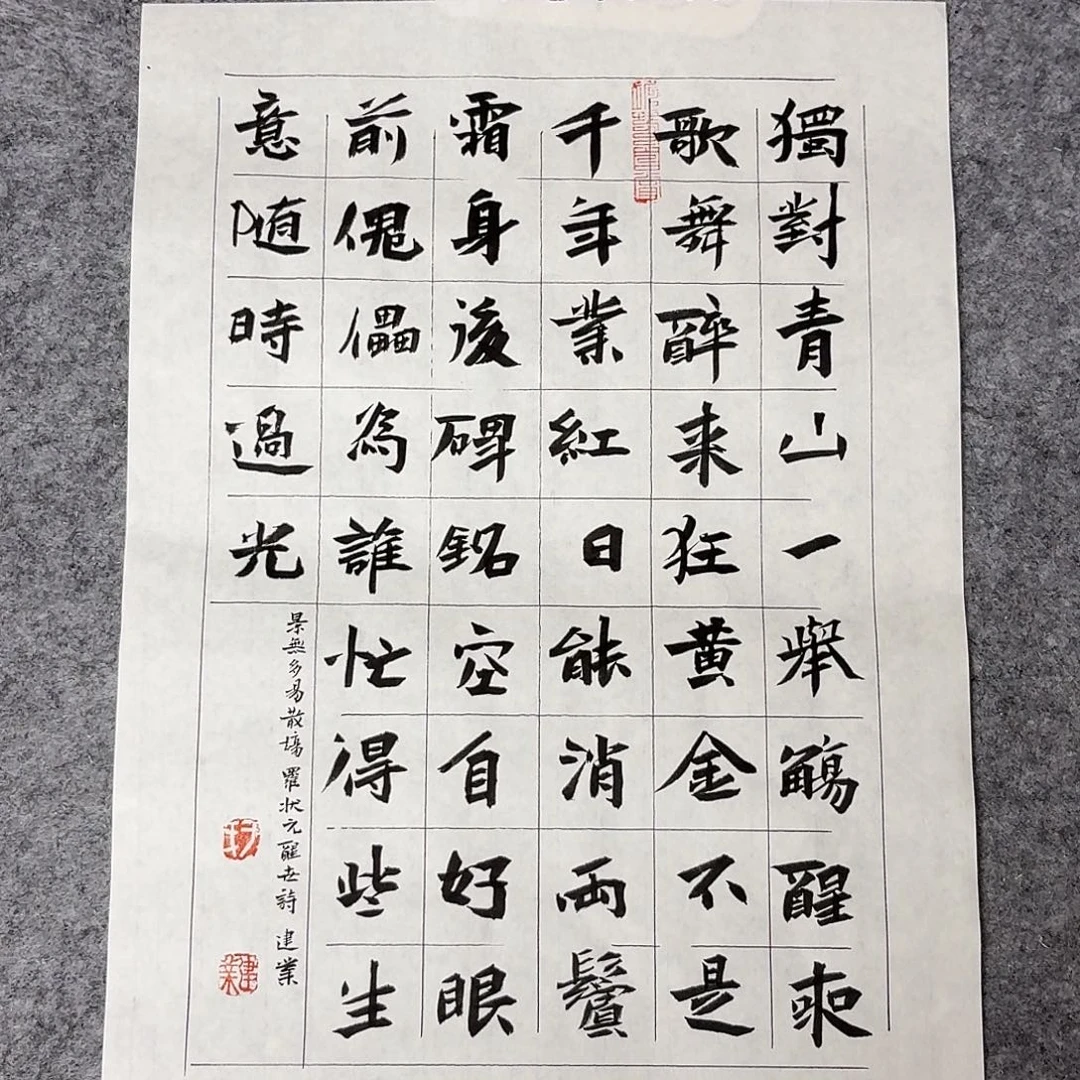 獨對青山一舉觴醒來
歌舞醉来狂黄金不是
千年業紅日能消両鬢
霜身後碑銘空自好眼
前傀儡為誰忙得些生
意随時過光
景無多易散場 羅状元醒世詩 建業
建業